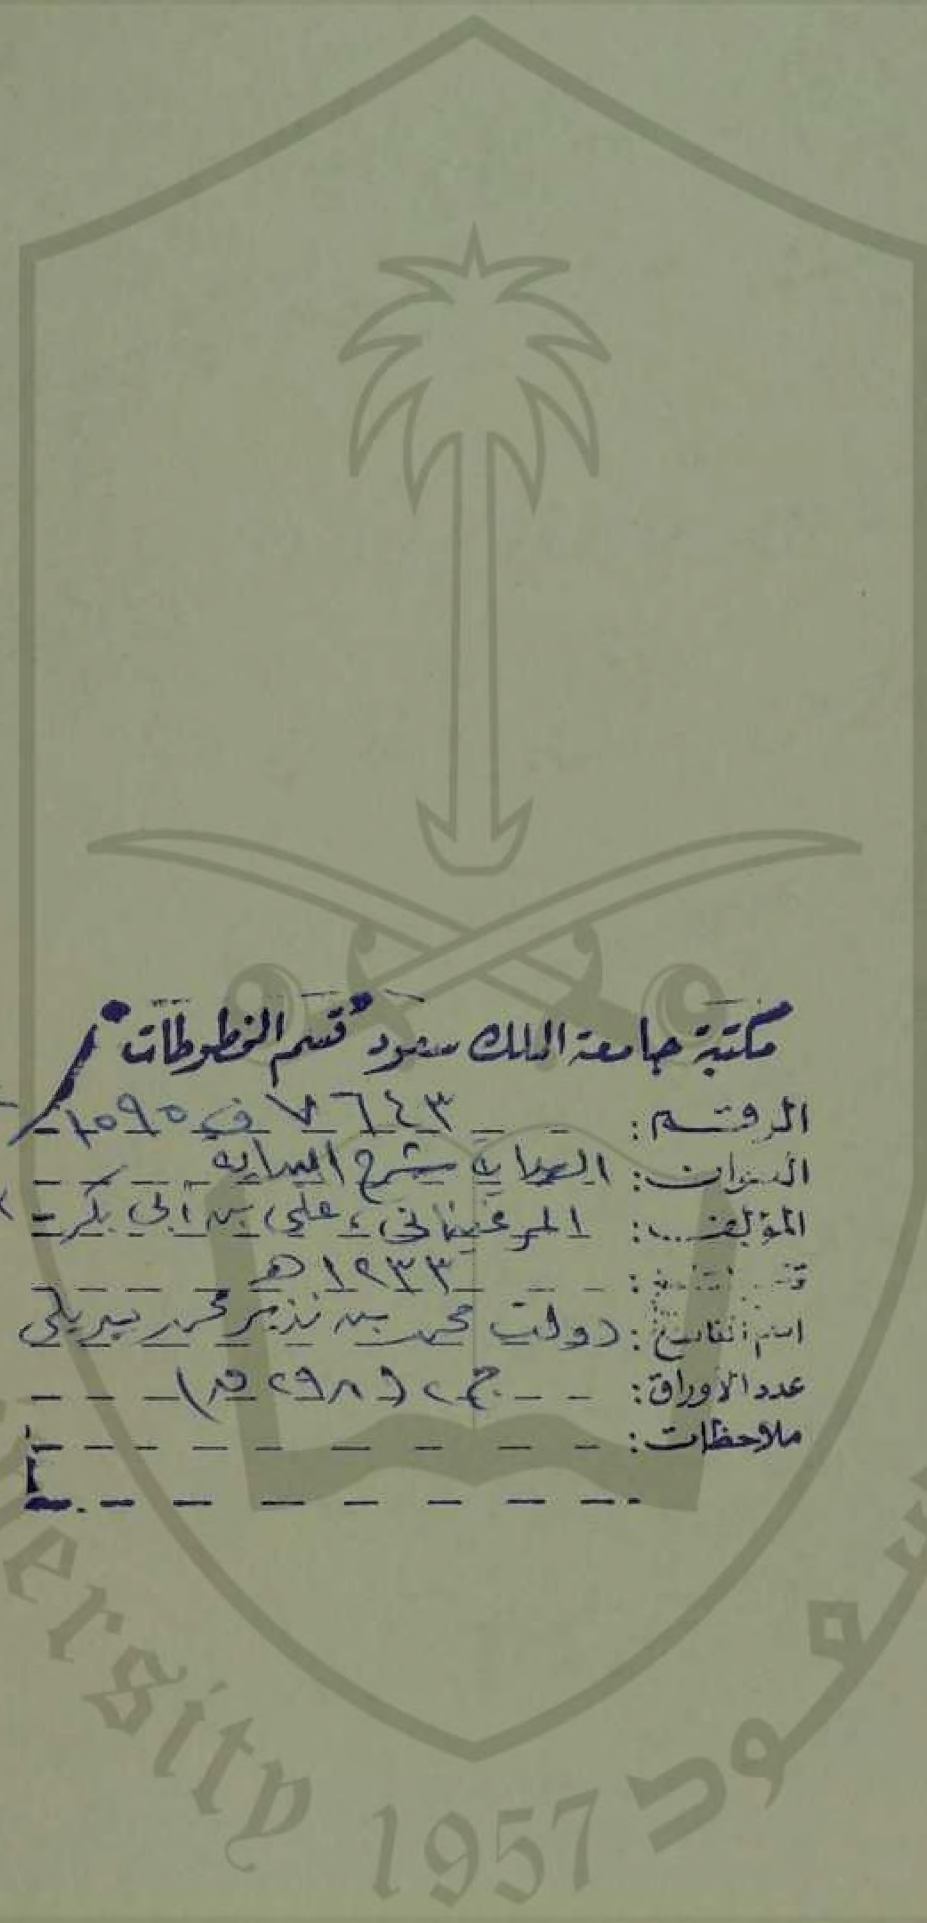 مكتبة جامعة الملك سعود قسم المخطوطات
الرقم: ٧٦٤٣ ف ١٠٩٥
العنوان: الهداية شرح البداية
المؤلف: المرغيناني، علي بن أبي بكر
١٢٣٣هـ
اسم الناسخ: دولت محمد بن نذير محمد
عدد الأوراق: ج٢ (٢٩٨ ق)
ملاحظات:
ersity 1957 سعود